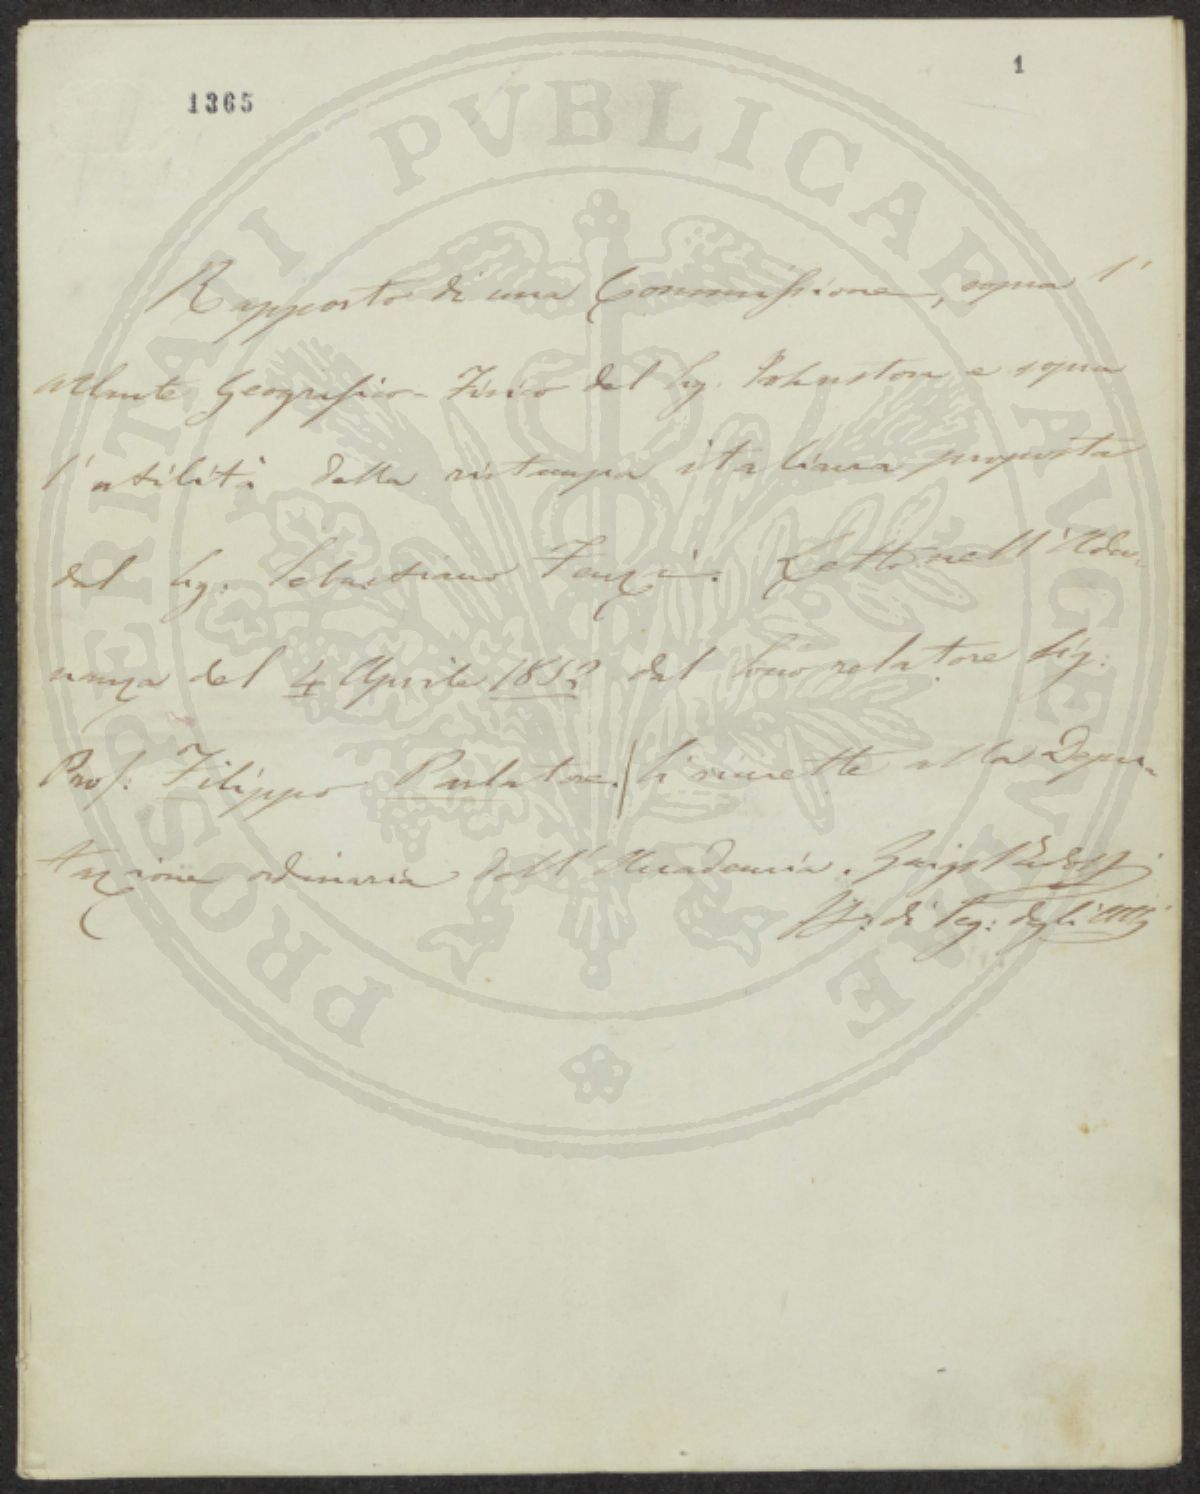 1365
1
PROSPERITATI PVBLICAE AVGENDAE
Rapporto di una Commissione, sopra l'
atlante Geografico-Fisico del Sig. Johnston e sopra
l'utilità della ristampa italiana proposta
dal Sig. Sebastiano Fenzi. Letto nell'Adu-
nanza del 4 Aprile 1852 dal Socio relatore Sig:
Prof: Filippo Parlatore./ Si rimette alla Depu-
tazione ordinaria dell'Accademia.
di Seg: degli Atti